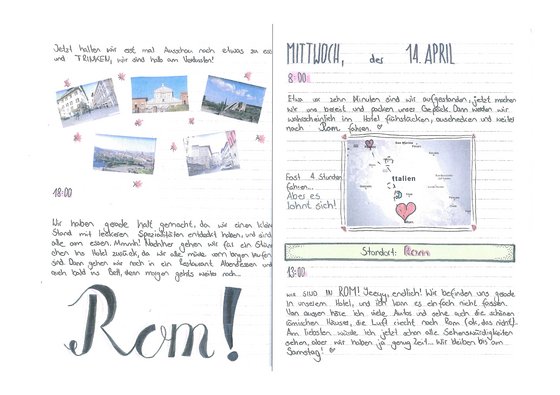 Jetzt halten wir erst mal Ausschau nach etwas zu ess
und TRINKEN, wir sind halb am Verdursten!
18:00
Wir haben gerade halt gemacht, da wir einen kleinen
Stand mit leckeren Spezialitäten entdeckt haben, und sind
alle am essen. Mmmh! Nachher gehen wir für ein Stün
chen ins Hotel zurück, da wir alle müde vom langen laufen
sind. Dann gehen wir noch in ein Restaurant Abendessen und
auch bald ins Bett, denn morgen gehts weiter nach...
Rom!
MITTWOCH, des 14. APRIL
8:00
Etwa vor zehn Minuten sind wir aufgestanden, jetzt machen
wir uns bereit und packen unser Gepäck. Dann werden wir
wahrscheinlich im Hotel frühstücken, auschecken und weiter
nach Rom fahren.
Fast 4 Stunden
fahren...
Aber es
lohnt sich!
Italien
Standort: Rom
13:00
WIR SIND IN ROM! Yeeyy, endlich! Wir befinden uns gerade
in unserem Hotel, und ich kann es einfach nicht fassen.
Von aussen höre ich viele Autos und sehe auch die schönen
römischen Häuser, die Luft riecht nach Rom (ok, das nicht).
Am liebsten würde ich jetzt schon alle Sehenswürdigkeiten
sehen, aber wir haben ja genug Zeit... Wir bleiben bis am
Samstag!